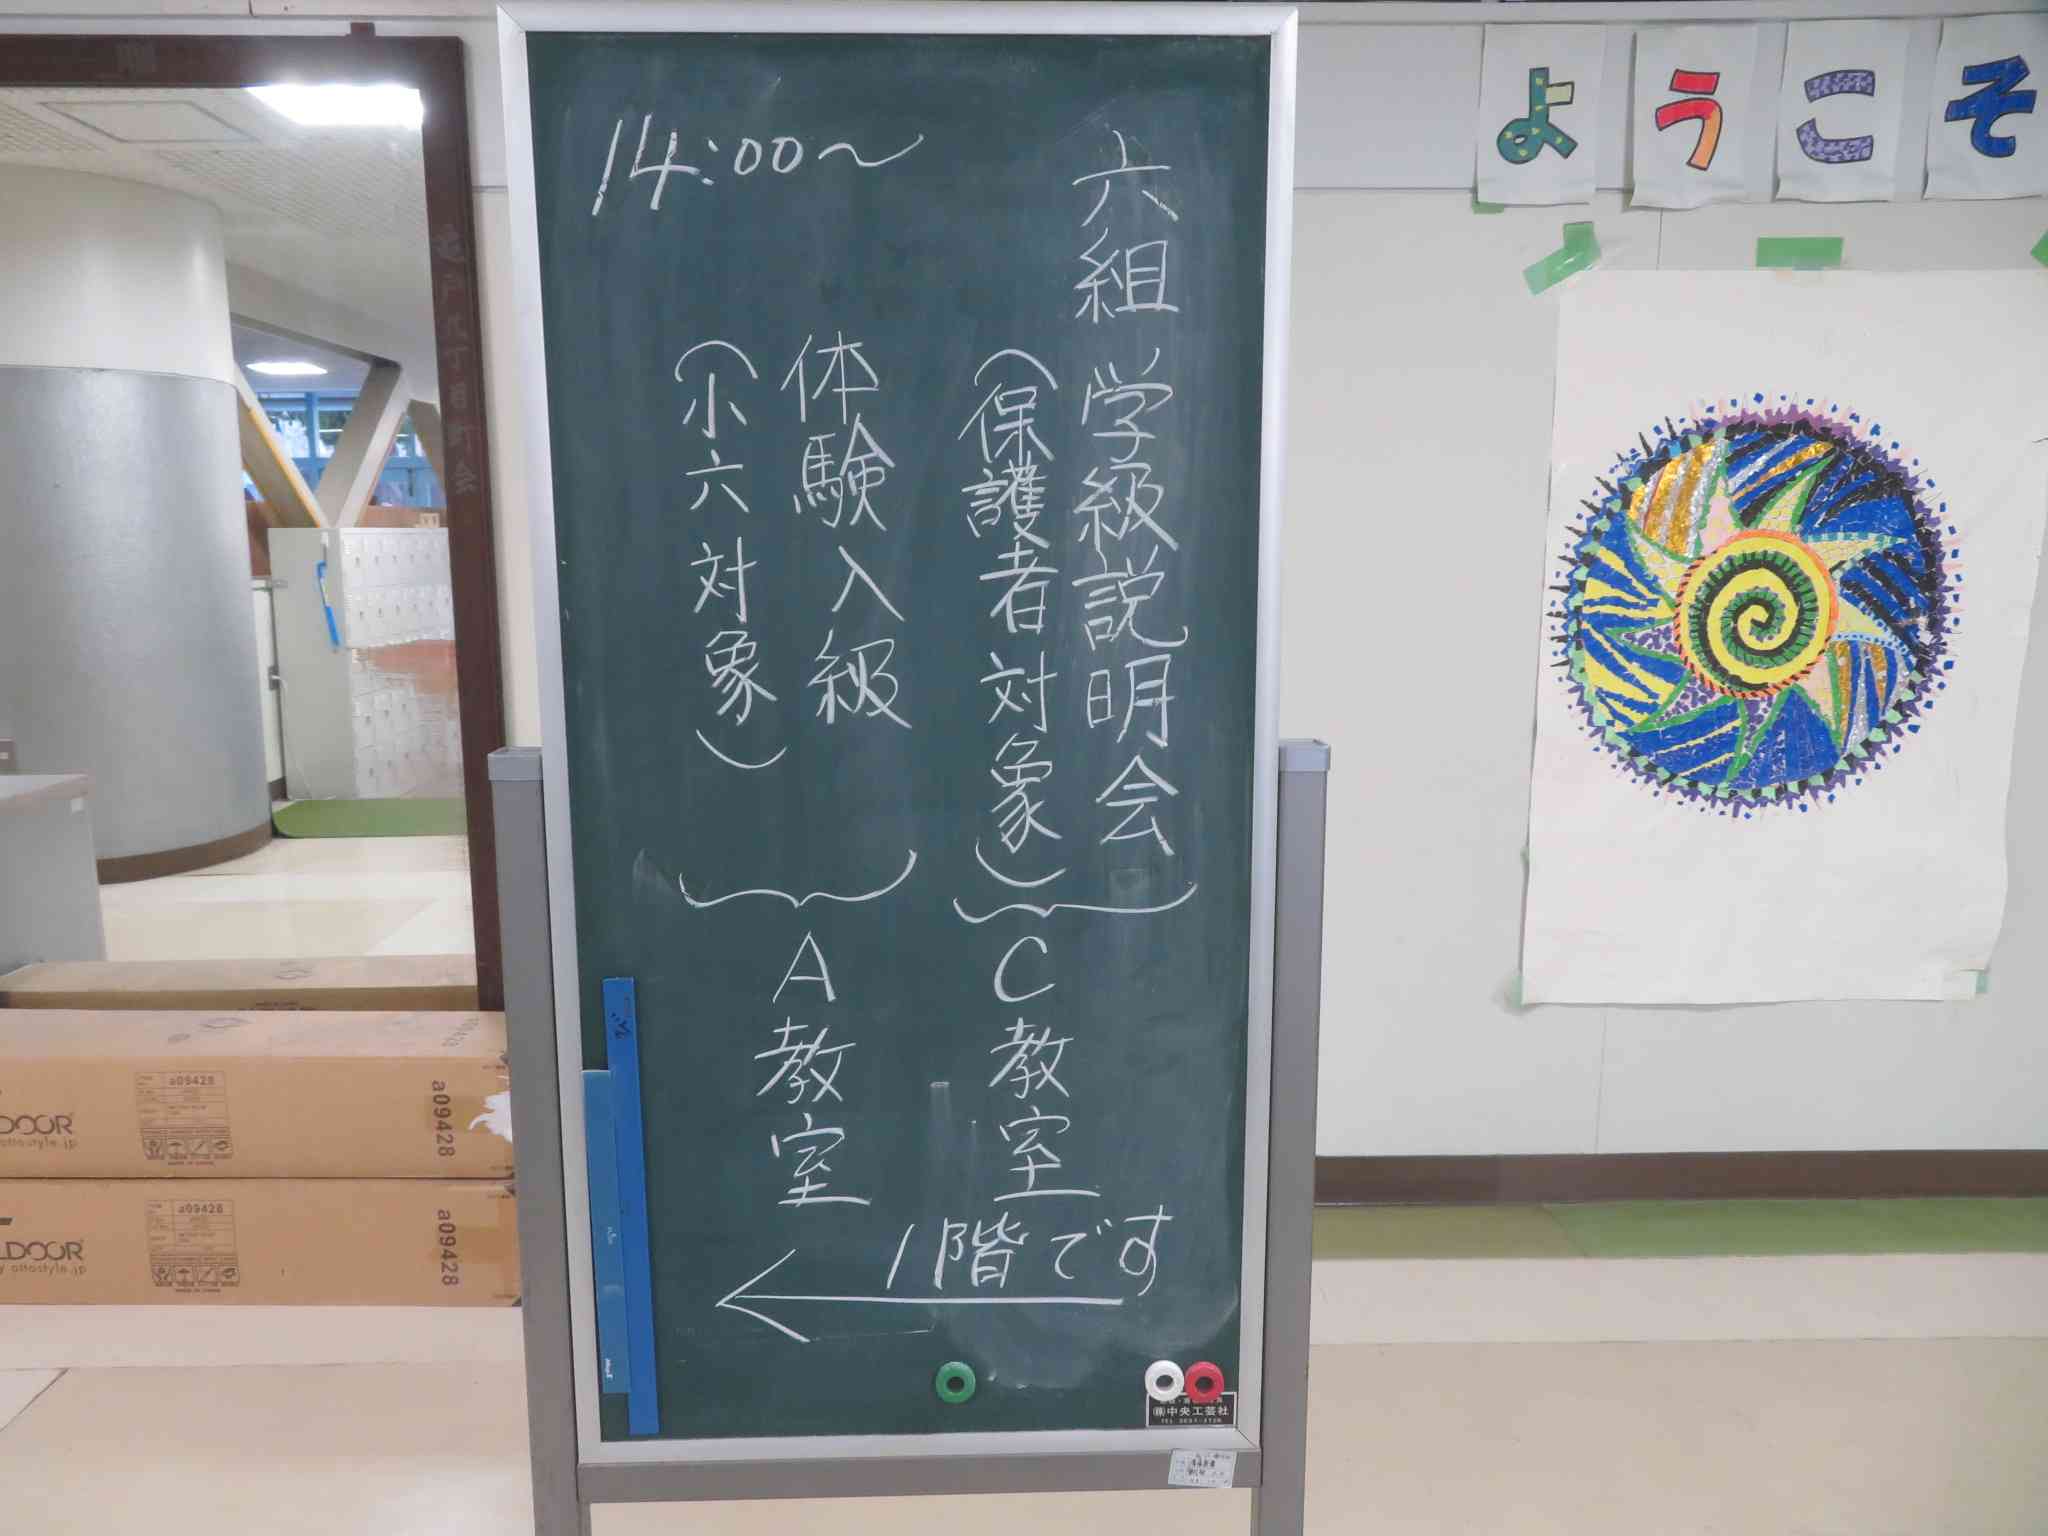 14:00〜
六組 学級説明会
（保護者対象）
C教室
体験入級
（小六対象）
A教室
1階です
←
ようこそ
亀戸九丁目町会
a09428
a09428
DOOR
ottostyle.jp
a09428
a09428
LDOOR
ottostyle.jp
㈱中央工芸社